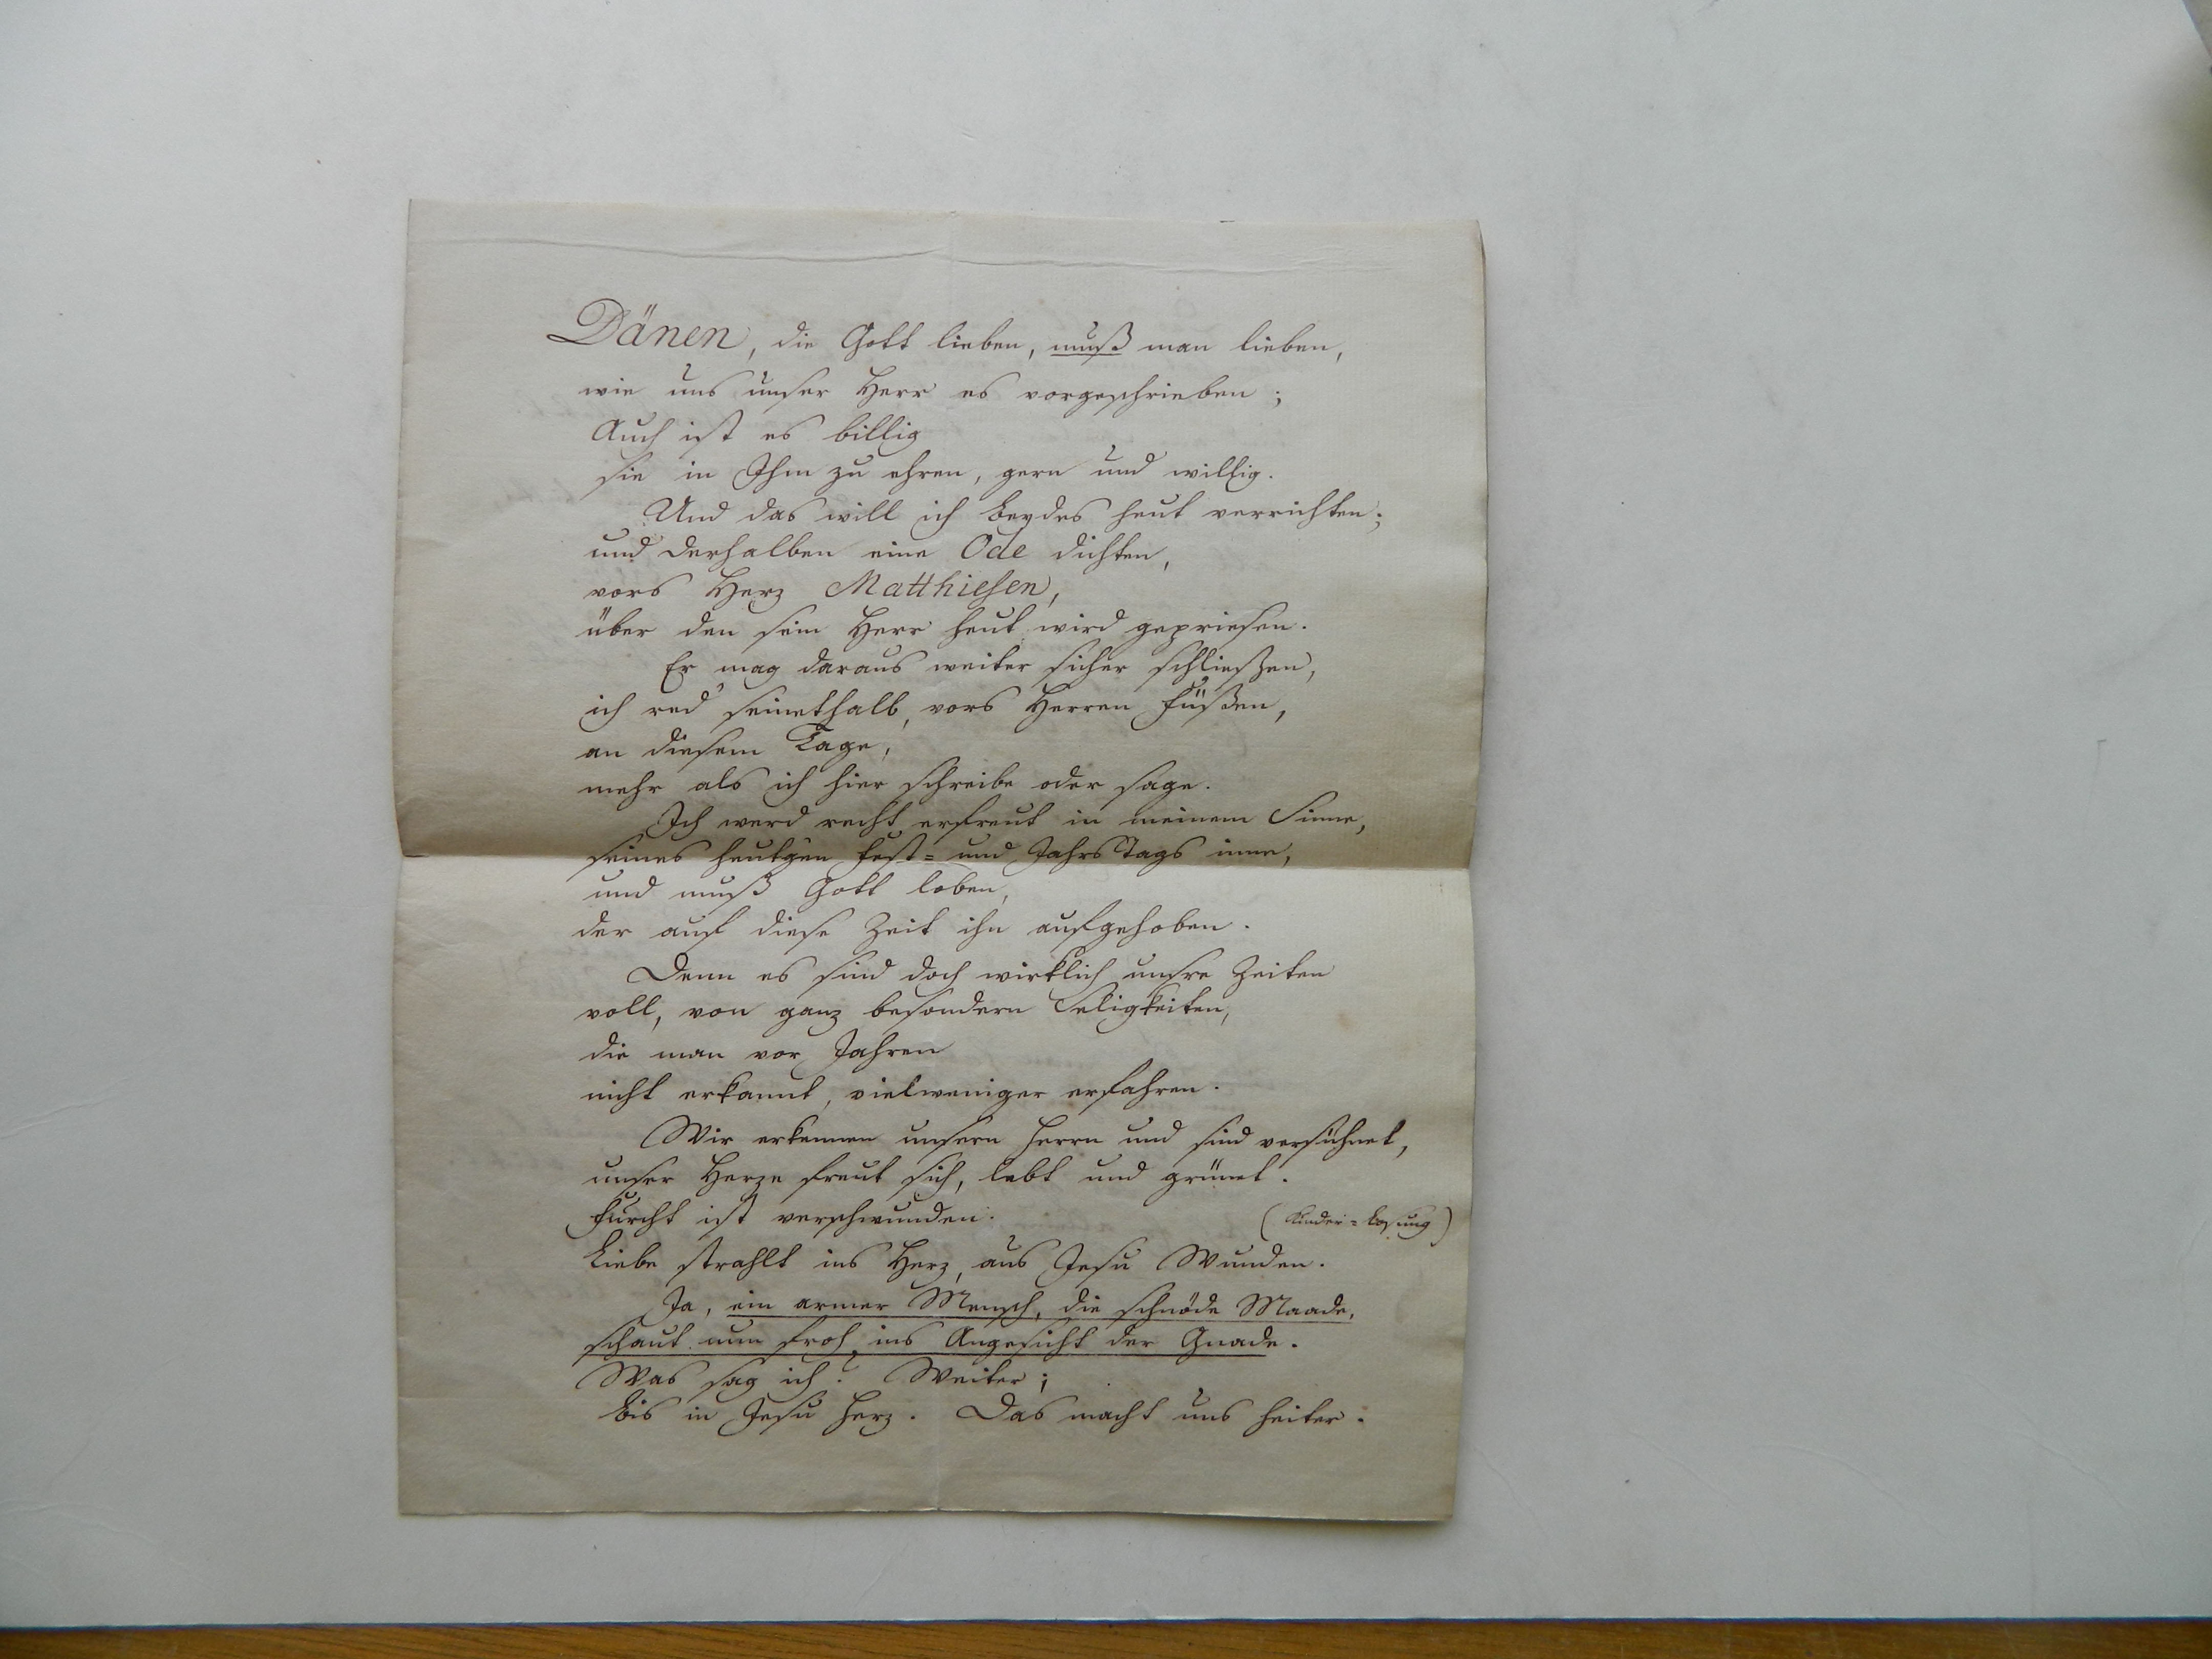 Dänen, die Gott lieben, muß man lieben,
wie uns unser Herr es vorgeschrieben;
Auch ist es billig
sie in Ihm zu ehren, gern und willig.
Und das will ich beydes heut verrichten;
und derhalben eine Ode dichten,
vors Herz Matthiesen,
über den sein Herr heut wird gepriesen.
Er mag daraus weiter sicher schließen,
ich red' seinethalb, vors Herren Füßen,
an diesem Tage,
mehr als ich hier schreibe oder sage.
Ich werd recht erfreut in meinem Sinne,
seines heutgen Fest= und Jahrs Tags inne,
und muß Gott loben,
der auf diese Zeit ihn aufgehoben.
Denn es sind doch wirklich unsre Zeiten
voll, von ganz besondern Seligkeiten,
die man vor Jahren
nicht erkannt, vielweniger erfahren.
Wir erkennen unsern Herrn und sind versühnet,
unser Herze freut sich, lebt und grünet.
Furcht ist verschwunden.
(Kinder=Losung)
Liebe strahlt ins Herz, aus Jesu Wunden.
Ja, ein armer Mensch, die schnöde Maade,
schaut nun froh ins Angesicht der Gnade.
Was sag ich? Weiter;
bis in Jesu Herz. Das macht uns heiter.